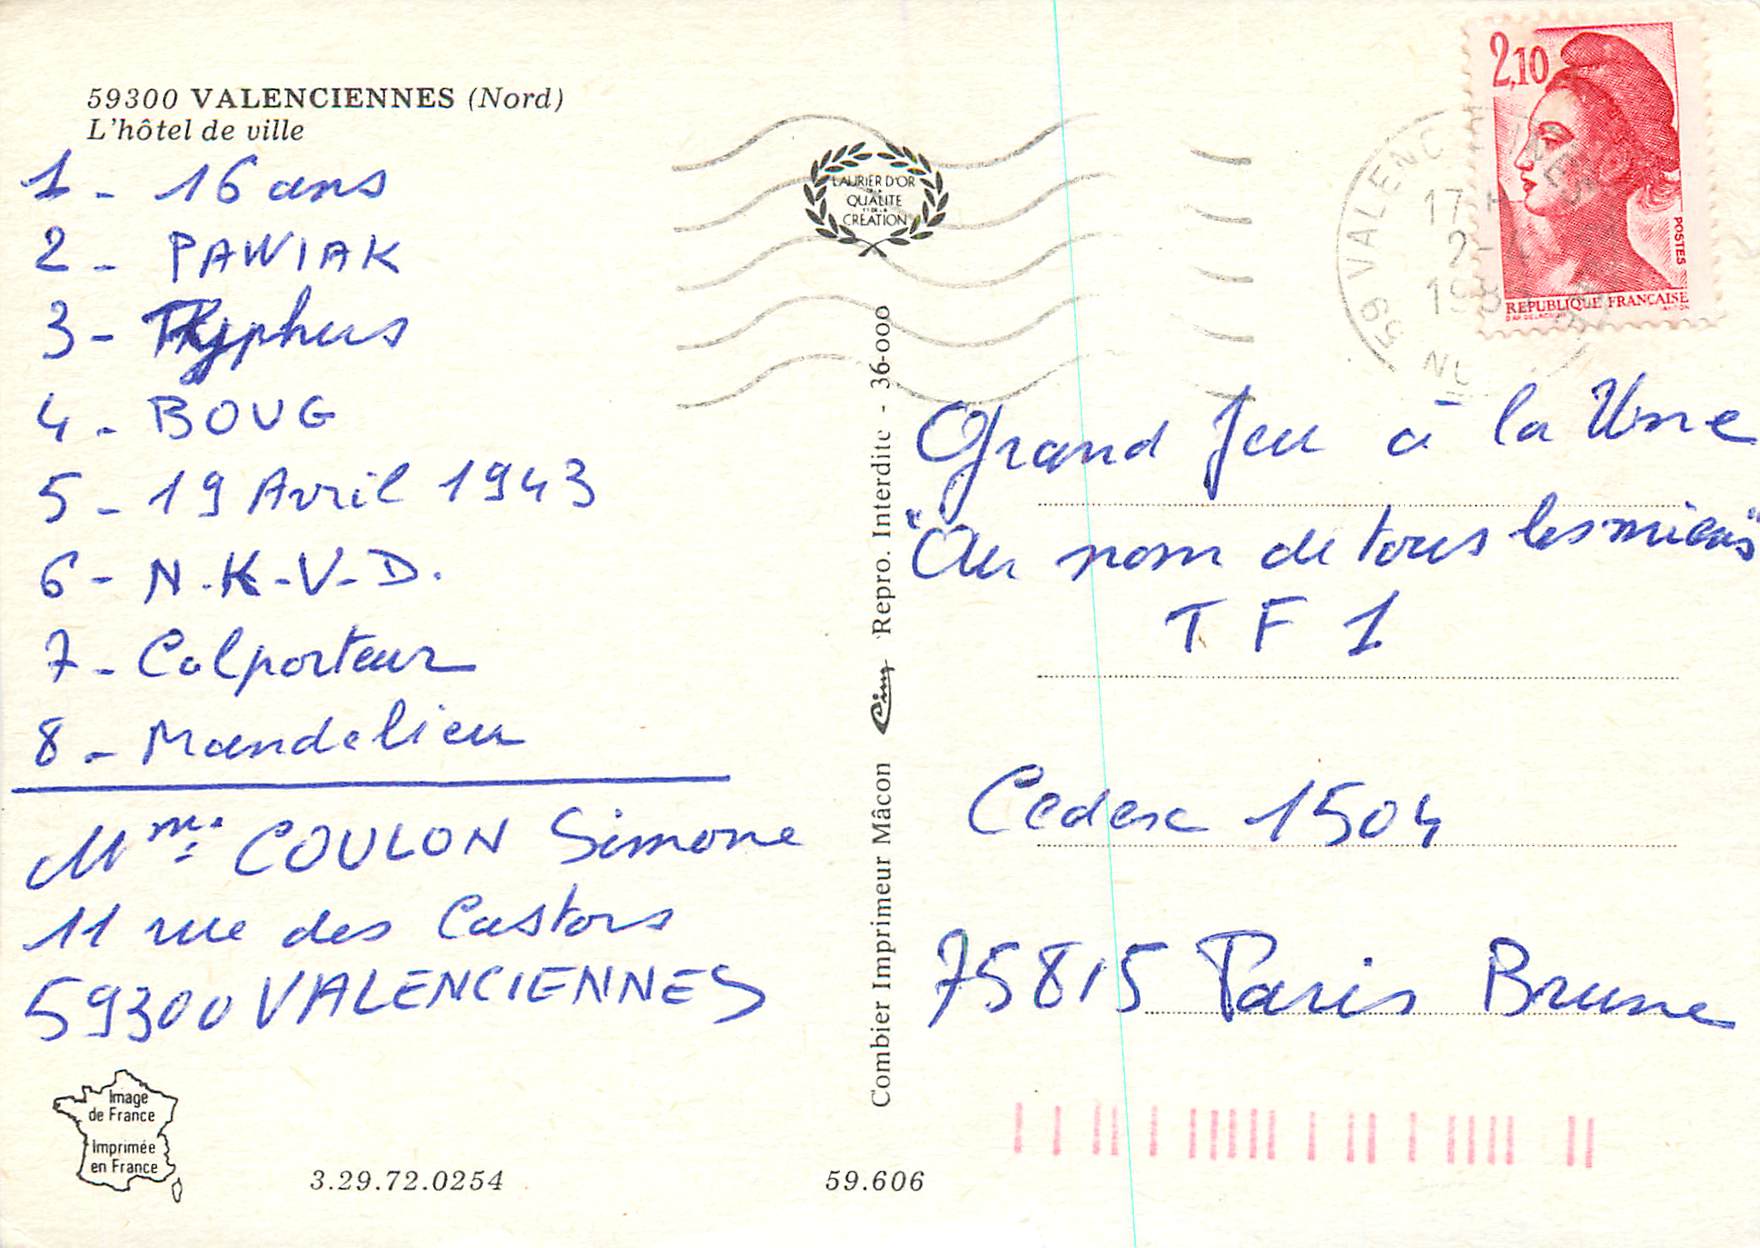 59300 VALENCIENNES (Nord)
L'hôtel de ville
1 - 16 ans
2 - PAWIAK
3 - Typhus
4 - BOUG
5 - 19 Avril 1943
6 - N.K-V-D.
7 - Colporteur
8 - Mandelieu
Mme COULON Simone
11 rue des Castors
59300 VALENCIENNES
Image
de France
Imprimée
en France
3.29.72.0254
59.606
LAURIER D'OR
DE LA
QUALITE
ET DE LA
CREATION
Combier Imprimeur Mâcon Cim Repro. Interdite - 36-000
2,10
POSTES
REPUBLIQUE FRANÇAISE
59 VALENCIENNES
17 H
2-
198
Grand Jeu à la Une
"Au nom de tous les miens"
TF1
Cedex 1504
75815 Paris Brune